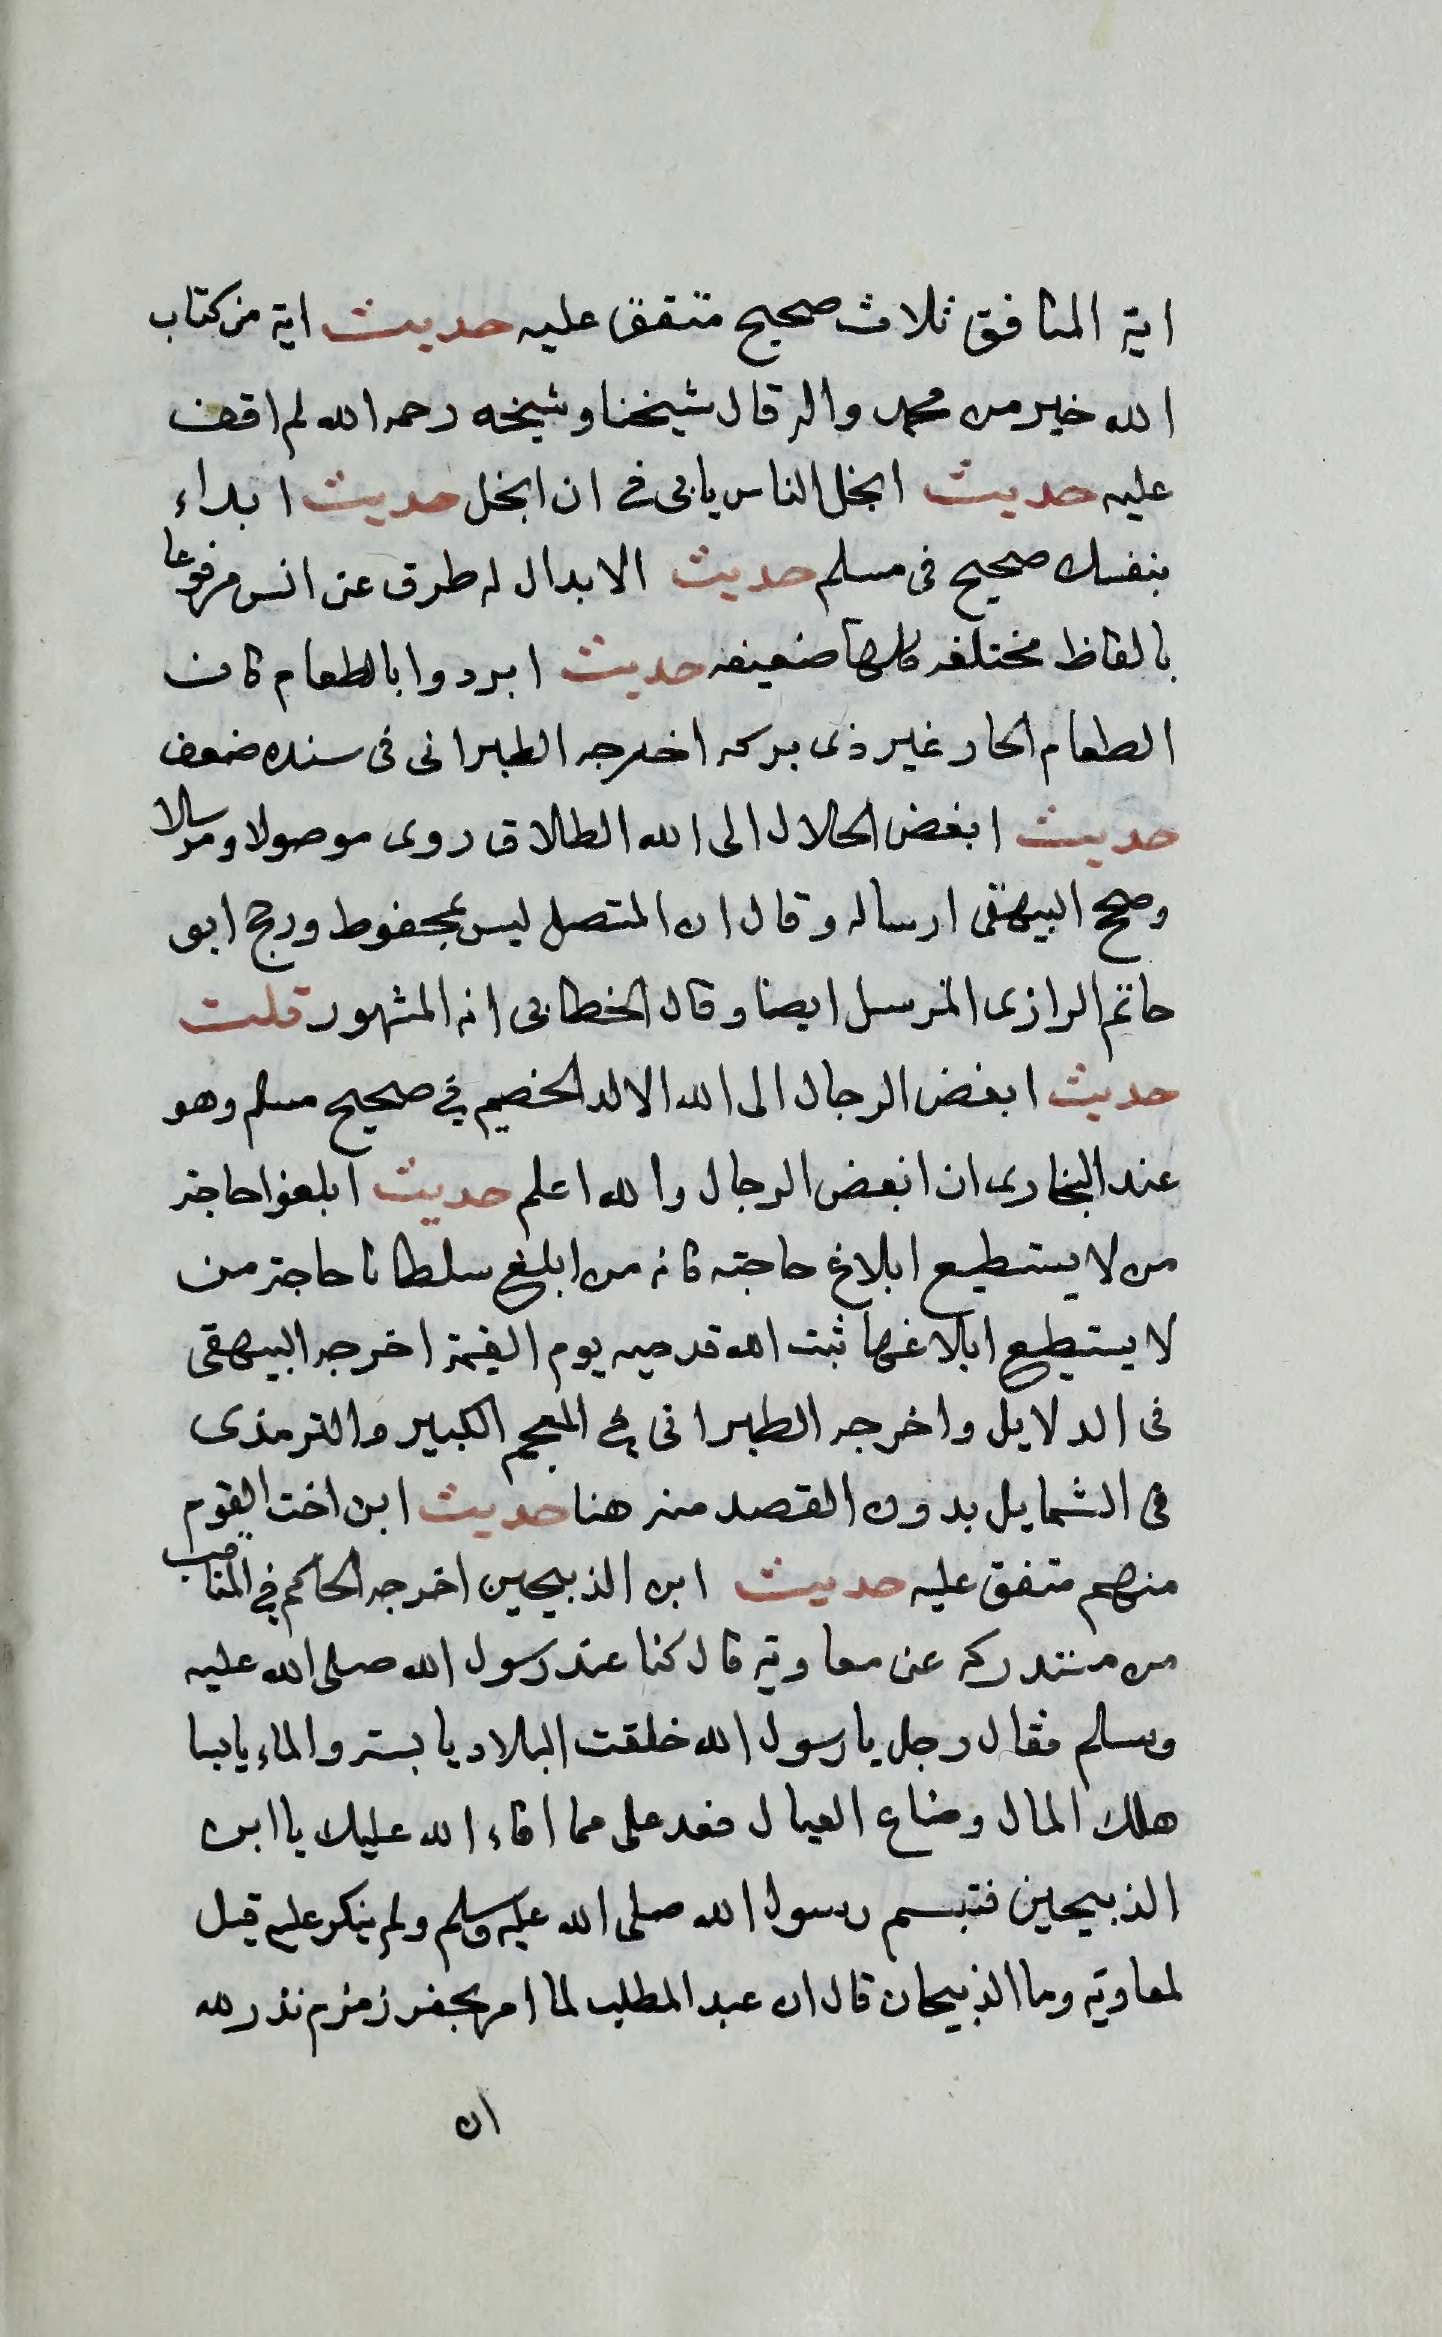 اية المنافق ثلاث صحيح متفق عليه حديث اية من كتاب
الله خير من محمد واله قال شيخنا وشيخه رحمه الله لم اقف
عليه حديث ابخل الناس ياتى فى ان ابخل حديث ابداء
بنفسك صحيح فى مسلم حديث الابدال له طرق عن انس مرفوعا
بالفاظ مختلفه كلها ضعيفه حديث ابردوا بالطعام فان
الطعام الحار غير ذى بركه اخرجه الطبرانى فى سنده ضعف
حديث ابغض الحلال الى الله الطلاق روى موصولا ومرسلا
وصحح البيهقى ارساله وقال ان المتصل ليس بمحفوظ ورجح ابو
حاتم الرازى المرسل ايضا وقال الخطابى انه المشهور قلت
حديث ابغض الرجال الى الله الالد الخصيم فى صحيح مسلم وهو
عند البخارى ان ابغض الرجال والله اعلم حديث ابلغوا حاجة
من لا يستطيع ابلاغ حاجته فانه من ابلغ سلطانا حاجة من
لا يستطيع ابلاغها ثبت الله قدميه يوم القيمة اخرجه البيهقى
فى الدلايل واخرجه الطبرانى فى المعجم الكبير والترمذى
فى الشمايل بدون القصد منه هنا حديث ابن اخت القوم
منهم متفق عليه حديث ابن الذبيحين اخرجه الحاكم فى المناقب
من مستدركه عن معاوية قال كنا عند رسول الله صلى الله عليه
وسلم فقال رجل يا رسول الله خلقت البلاد يابسة والماء يابسا
هلك المال وضاع العيال فعد على مما افاء الله عليك يا ابن
الذبيحين فتبسم رسول الله صلى الله عليه وسلم ولم ينكر عليه قيل
لمعاوية وما الذبيحان قال ان عبد المطلب لما امر بحفر زمزم نذر لله
ان